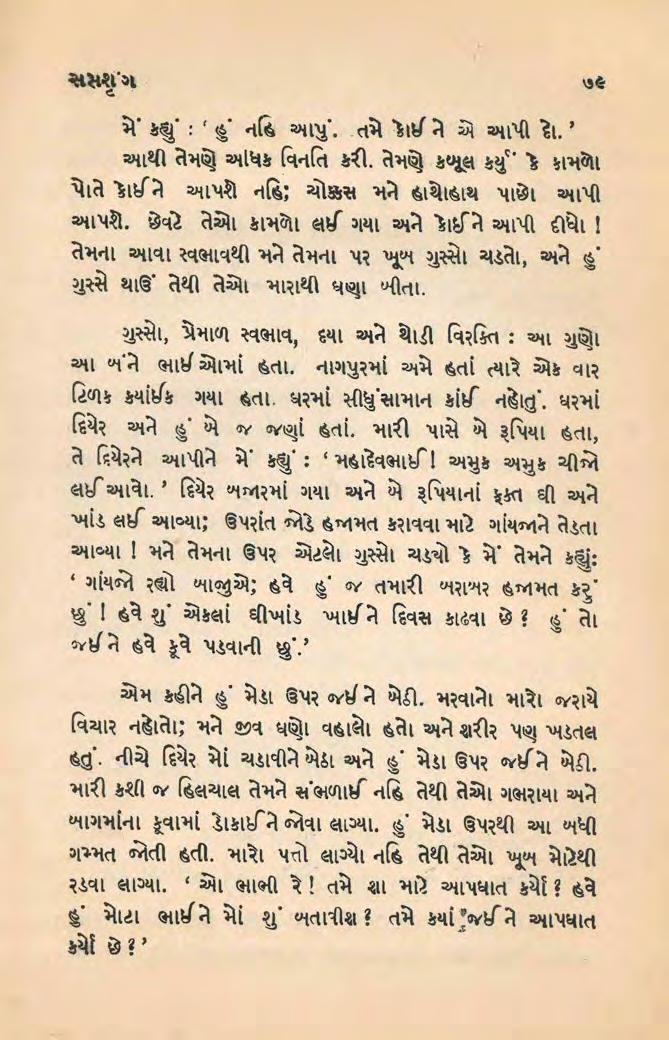 સપ્તશૃંગ ૭૯
મેં કહ્યું : ‘ હું નહિ આપું. તમે કોઈ ને એ આપી દો. ’
આથી તેમણે અધિક વિનતિ કરી. તેમણે કબૂલ કર્યું કે કામળો
પોતે કોઈને આપશે નહિ; ચોક્કસ મને હાથોહાથ પાછો આપી
આપશે. છેવટે તેઓ કામળો લઈ ગયા અને કોઈને આપી દીધો !
તેમના આવા સ્વભાવથી મને તેમના પર ખૂબ ગુસ્સો ચડતો, અને હું
ગુસ્સે થાઉં તેથી તેઓ મારાથી ઘણા બીતા.
ગુસ્સો, પ્રેમાળ સ્વભાવ, દયા અને થોડી વિરક્તિ : આ ગુણો
આ બંને ભાઈઓમાં હતા. નાગપુરમાં અમે હતાં ત્યારે એક વાર
ટિળક કયાંઈક ગયા હતા. ઘરમાં સીધુંસામાન કાંઈ નહોતું. ઘરમાં
દિયેર અને હું બે જ જણાં હતાં. મારી પાસે બે રૂપિયા હતા,
તે દિયેરને આપીને મેં કહ્યું : ‘ મહાદેવભાઈ! અમુક અમુક ચીજો
લઈ આવો. ’ દિયેર બજારમાં ગયા અને બે રૂપિયાનાં ફક્ત ઘી અને
ખાંડ લઈ આવ્યા; ઉપરાંત જોડે હજામત કરાવવા માટે ગાંયજાને તેડતા
આવ્યા ! મને તેમના ઉપર એટલો ગુસ્સો ચડયો કે મેં તેમને કહ્યું:
‘ ગાંયજો રહ્યો બાજુએ; હવે હું જ તમારી બરાબર હજામત કરું
છું ! હવે શું એકલાં ઘીખાંડ ખાઈને દિવસ કાઢવા છે ? હું તો
જઈને હવે કૂવે પડવાની છું.’
એમ કહીને હું મેડા ઉપર જઈને બેઠી. મરવાનો મારો જરાયે
વિચાર નહોતો; મને જીવ ઘણો વહાલો હતો અને શરીર પણ ખડતલ
હતું. નીચે દિયેર મોં ચડાવીને બેઠા અને હું મેડા ઉપર જઈને બેઠી.
મારી કશી જ હિલચાલ તેમને સંભળાઈ નહિ તેથી તેઓ ગભરાયા અને
બાગમાંના કૂવામાં ડોકાઈને જોવા લાગ્યા. હું મેડા ઉપરથી આ બધી
ગમ્મત જોતી હતી. મારો પત્તો લાગ્યો નહિ તેથી તેઓ ખૂબ મોટેથી
રડવા લાગ્યા. ‘ ઓ ભાભી રે ! તમે શા માટે આપઘાત કર્યો ? હવે
હું મોટા ભાઈને મોં શું બતાવીશ ? તમે કયાં જઈને આપઘાત
કર્યો છે ? ’